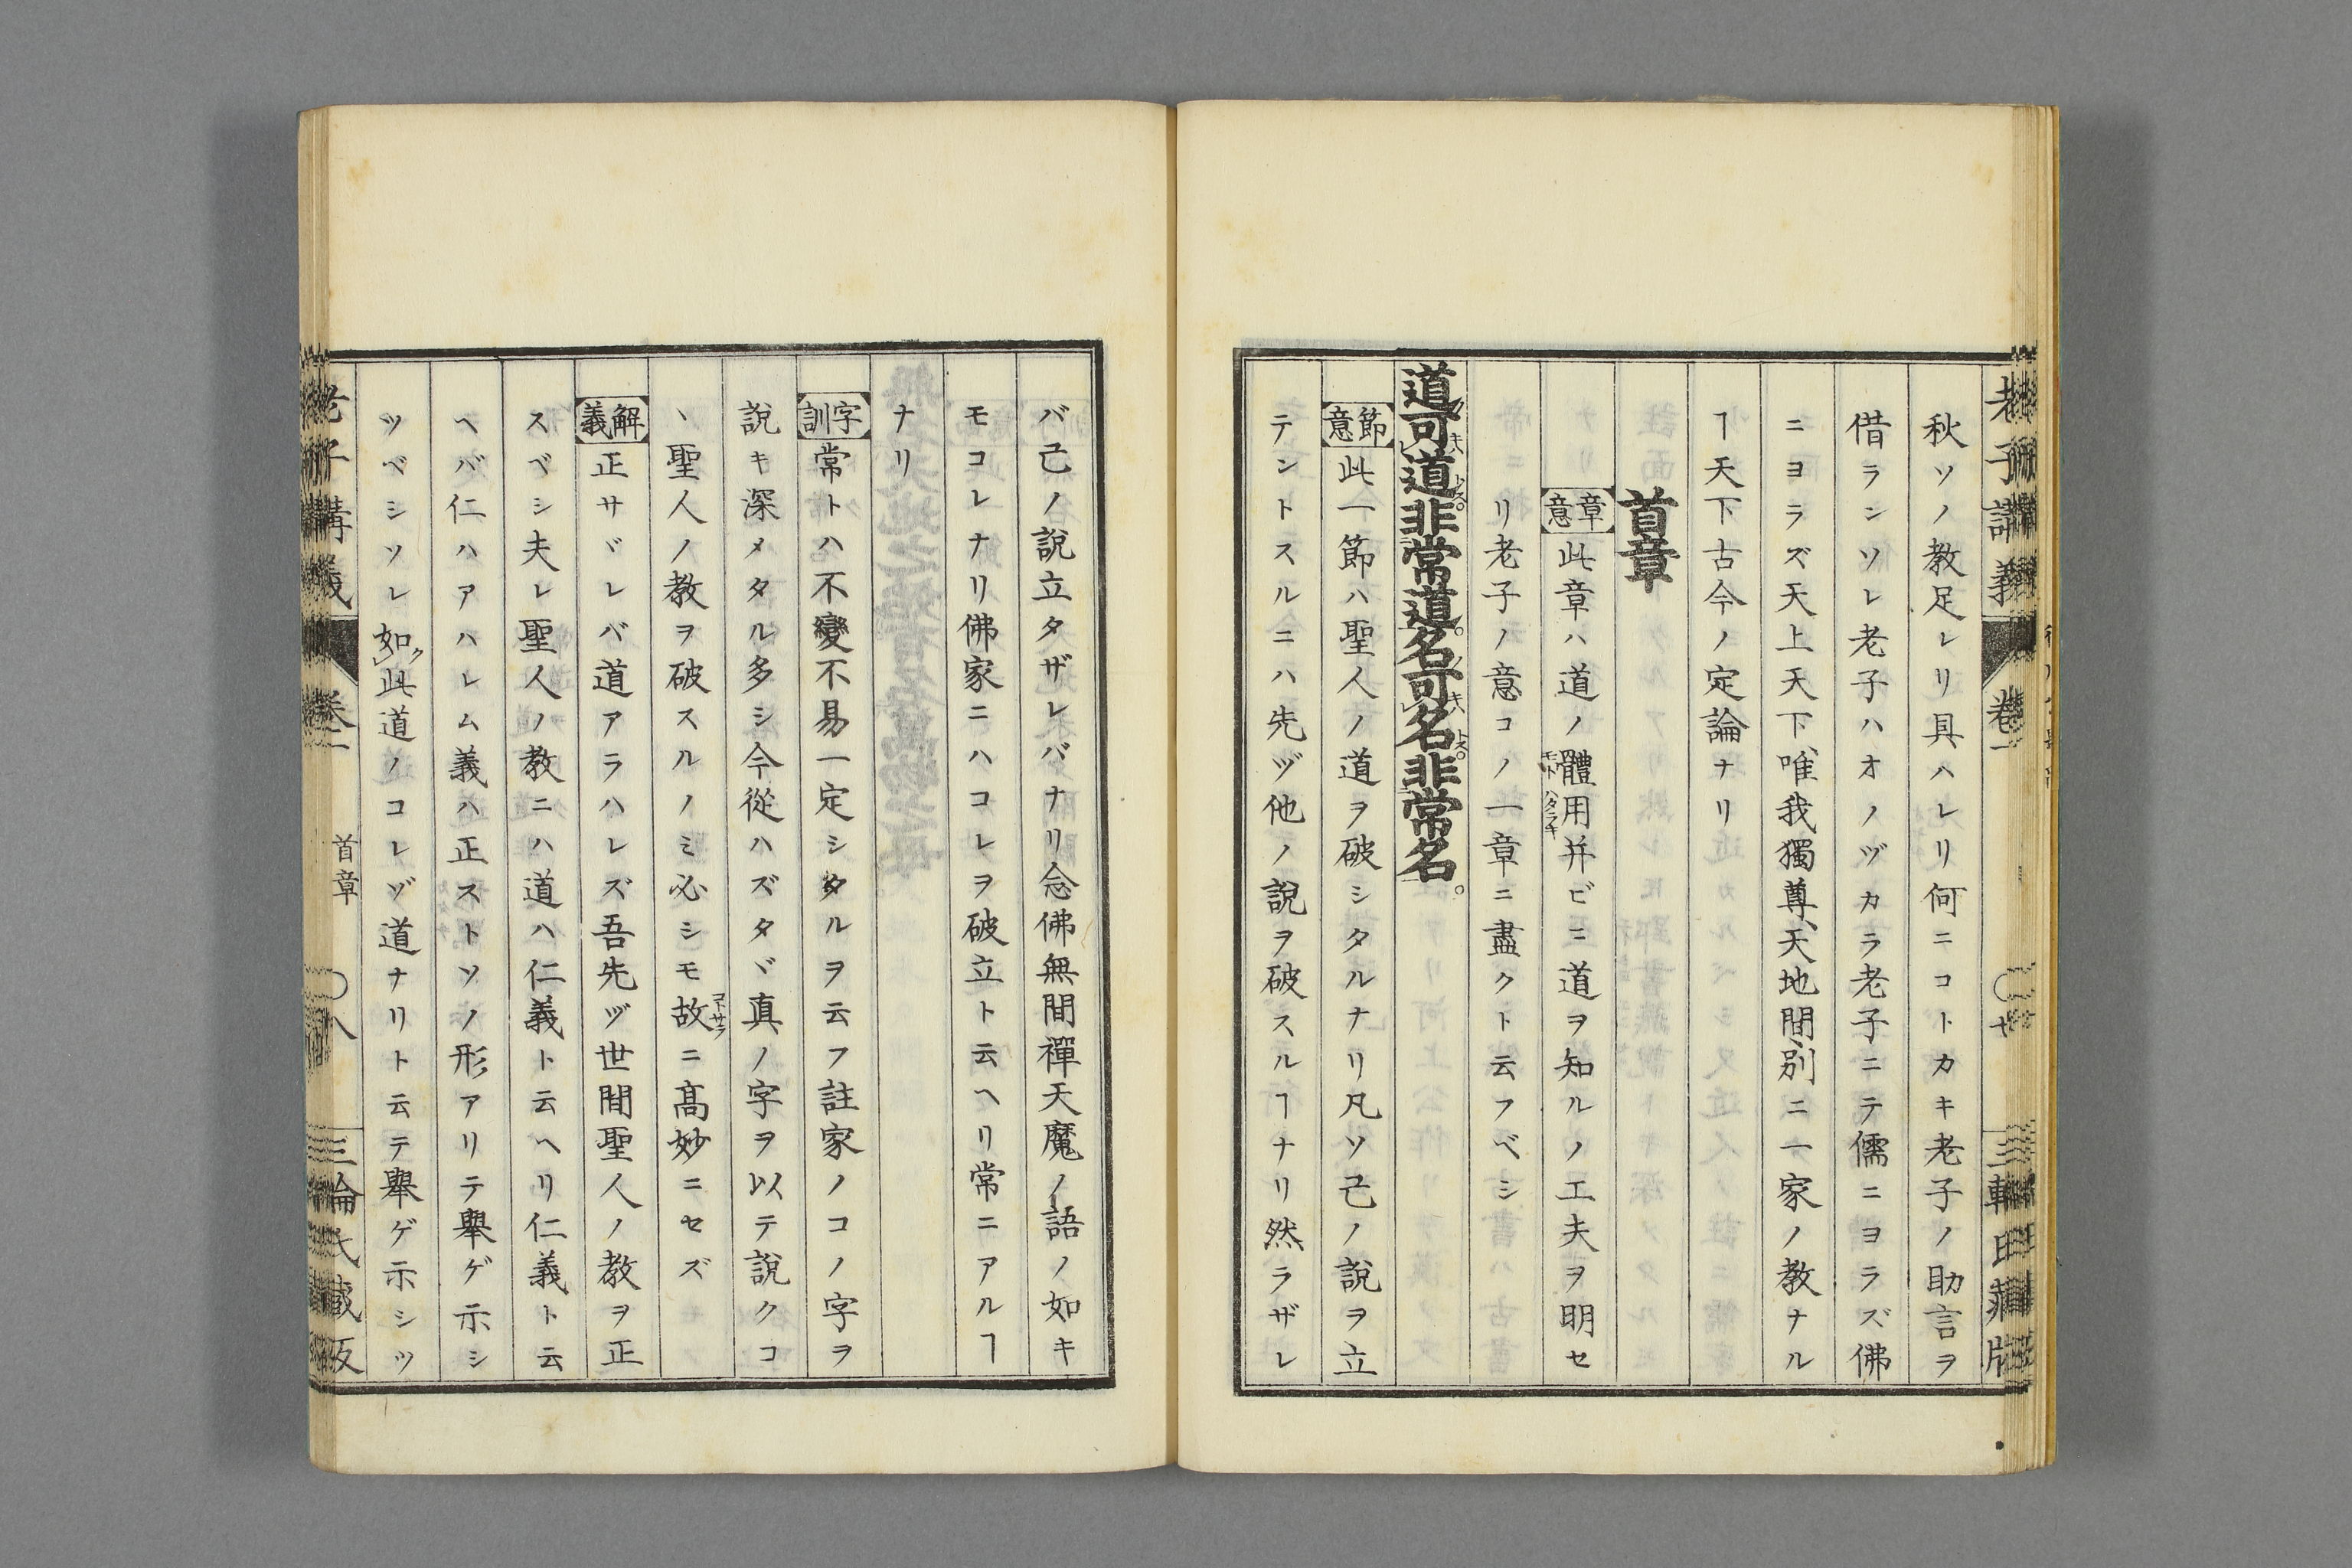 老子講義
卷一
〇七
三輪氏藏版
秋ソノ教足レリ具ハレリ何ニコトカキ老子ノ助言ヲ
借ランソレ老子ハオノヅカラ老子ニテ儒ニヨラズ佛
ニヨラズ天上天下、唯我獨尊、天地間、別ニ一家ノ教ナル
ヿ天下古今ノ定論ナリ
首章
章意 此章ハ道ノ體用并ビニ道ヲ知ルノ工夫ヲ明セ
リ老子ノ意コノ一章ニ盡クト云フベシ
道可道非常道。名可名非常名。
節意 此一節ハ聖人ノ道ヲ破シタルナリ凡ソ己ノ說ヲ立
テントスルニハ先ヅ他ノ說ヲ破スルヿナリ然ラザレ
バ己ノ說立タザレバナリ念佛無間禪天魔ノ語ノ如キ
モコレナリ佛家ニハコレヲ破立ト云ヘリ常ニアルヿ
ナリ
字訓 常トハ不變不易一定シタルヲ云フ註家ノコノ字ヲ
說キ深メタル多シ今從ハズタヾ真ノ字ヲ以テ說クコ
ヽ聖人ノ教ヲ破スルノミ必シモ故ニ高妙ニセズ
解義 正サヾレバ道アラハレズ吾先ヅ世間聖人ノ教ヲ正
スベシ夫レ聖人ノ教ニハ道ハ仁義ト云ヘリ仁義ト云
ヘバ仁ハアハレム義ハ正ストソノ形アリテ舉ゲ示シ
ツベシソレ如此道ノコレヅ道ナリト云テ舉ゲ示シツ
老子講義
卷一
首章
〇八
三輪氏藏版